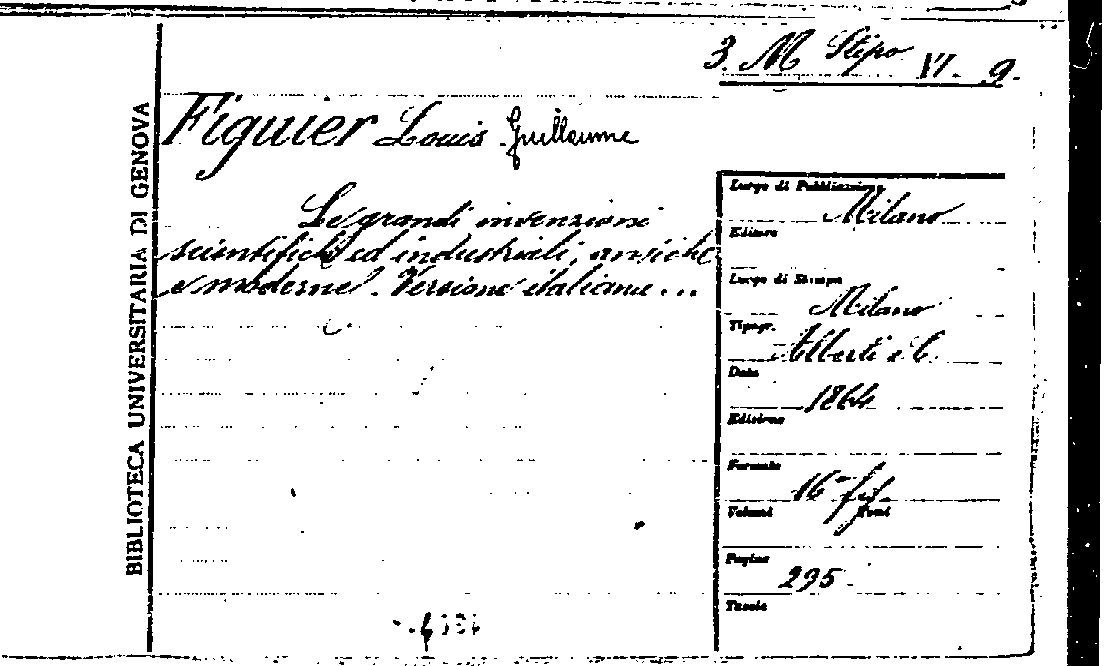 3. M Stipo VI. 9.
BIBLIOTECA UNIVERSITARIA DI GENOVA
Figuier Louis Guillaume
Le grandi invenzioni
scientifiche ed industriali, antiche
e moderne. Versione italiana ...
Luogo di Pubblicazione
Milano
Editore
Luogo di Stampa
Milano
Tipogr.
Alberti e C.
Data
1864
Edizione
Formato
16° fig.
Volumi Tomi
Pagine
295
Tavole